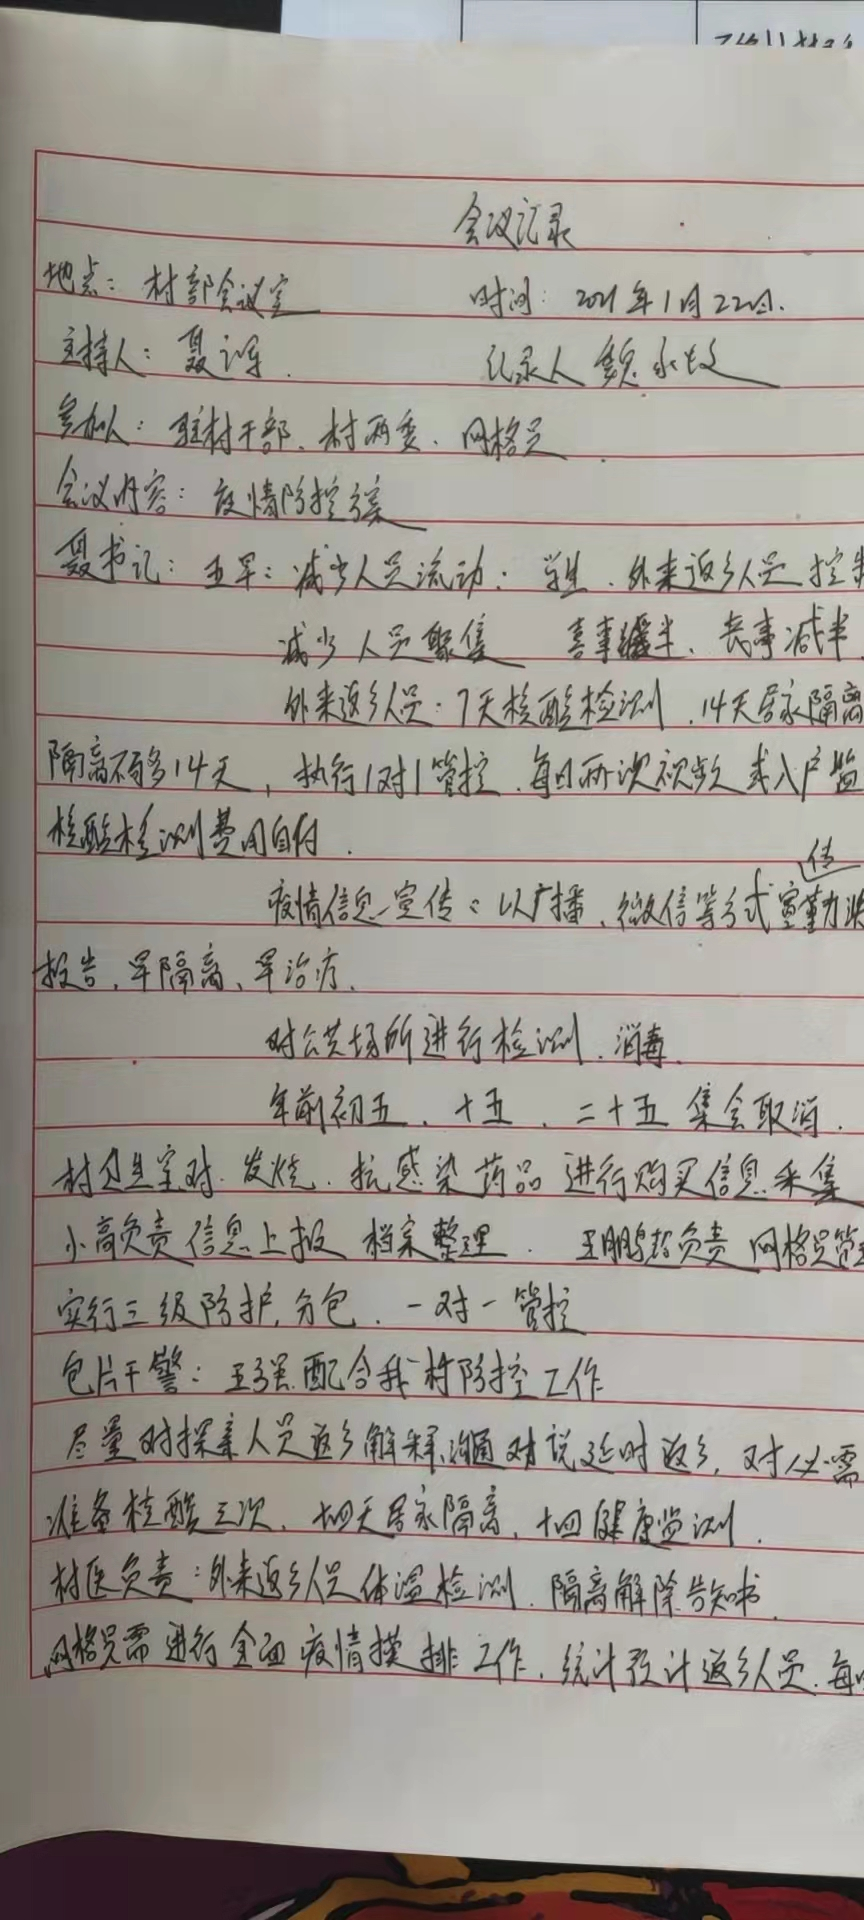 会议记录
地点：村部会议室 时间：2021年1月22日.
主持人：聂 记录人 魏永
参加人：驻村干部、村两委、网格员
会议内容：疫情防控方案
聂书记：五早：减少人员流动：学生、外来返乡人员控
减少人员聚集 喜事缓半、丧事减半
外来返乡人员：7天核酸检测、14天居家隔离
隔离不多14天，执行1对1管控、每日两次视频或入户监
核酸检测费用自付.
疫情信息宣传：以广播、微信等方式宣传勤洗
报告、早隔离、早治疗.
对公共场所进行检测、消毒.
年前初五、十五、二十五集会取消.
村卫生室对、发烧、抗感染药品进行购买信息采集
小高负责信息上报 档案整理. 王鹏超负责网格员管
实行三级防护,分包、一对一管控
包片干警：王强配合我村防控工作
尽量对探亲人员返乡解释、沟通对说延时返乡，对必需
准备核酸三次、十四天居家隔离、十四健康监测.
村医负责：外来返乡人员体温检测、隔离解除告知书.
网格员需进行全面疫情摸排工作、统计预计返乡人员、每